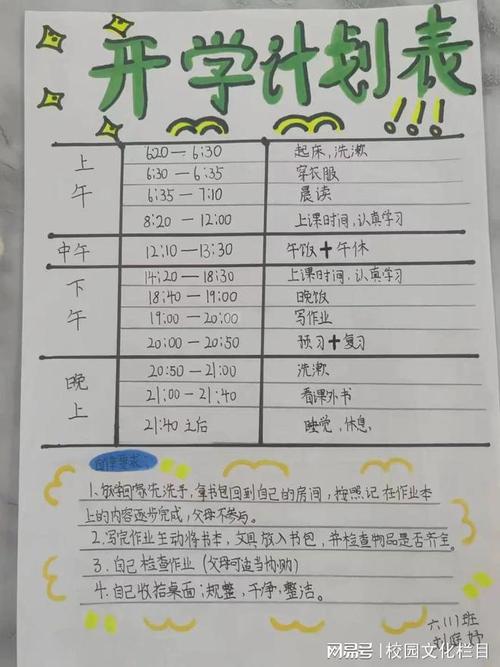 开学计划表!!!
上午
6:20—6:30 起床,洗漱
6:30—6:35 穿衣服
6:35—7:10 晨读
8:20—12:00 上课时间,认真学习
中午 12:10—13:30 午饭+午休
下午
14:20—18:30 上课时间,认真学习
18:40—19:00 晚饭
19:00—20:00 写作业
20:00—20:50 预习+复习
晚上
20:50—21:00 洗漱
21:00—21:40 看课外书
21:40之后 睡觉,休息
自律要求:
1、放学回家先洗手,拿书包回到自己的房间,按照记在作业本
上的内容逐步完成,父母不参与。
2、写完作业主动将书本,文具放入书包,并检查物品是否齐全。
3、自己检查作业(父母可适当协助)
4、自己收拾桌面:规整,干净,整洁。
六(1)班
刘 妤
网易号|校园文化栏目